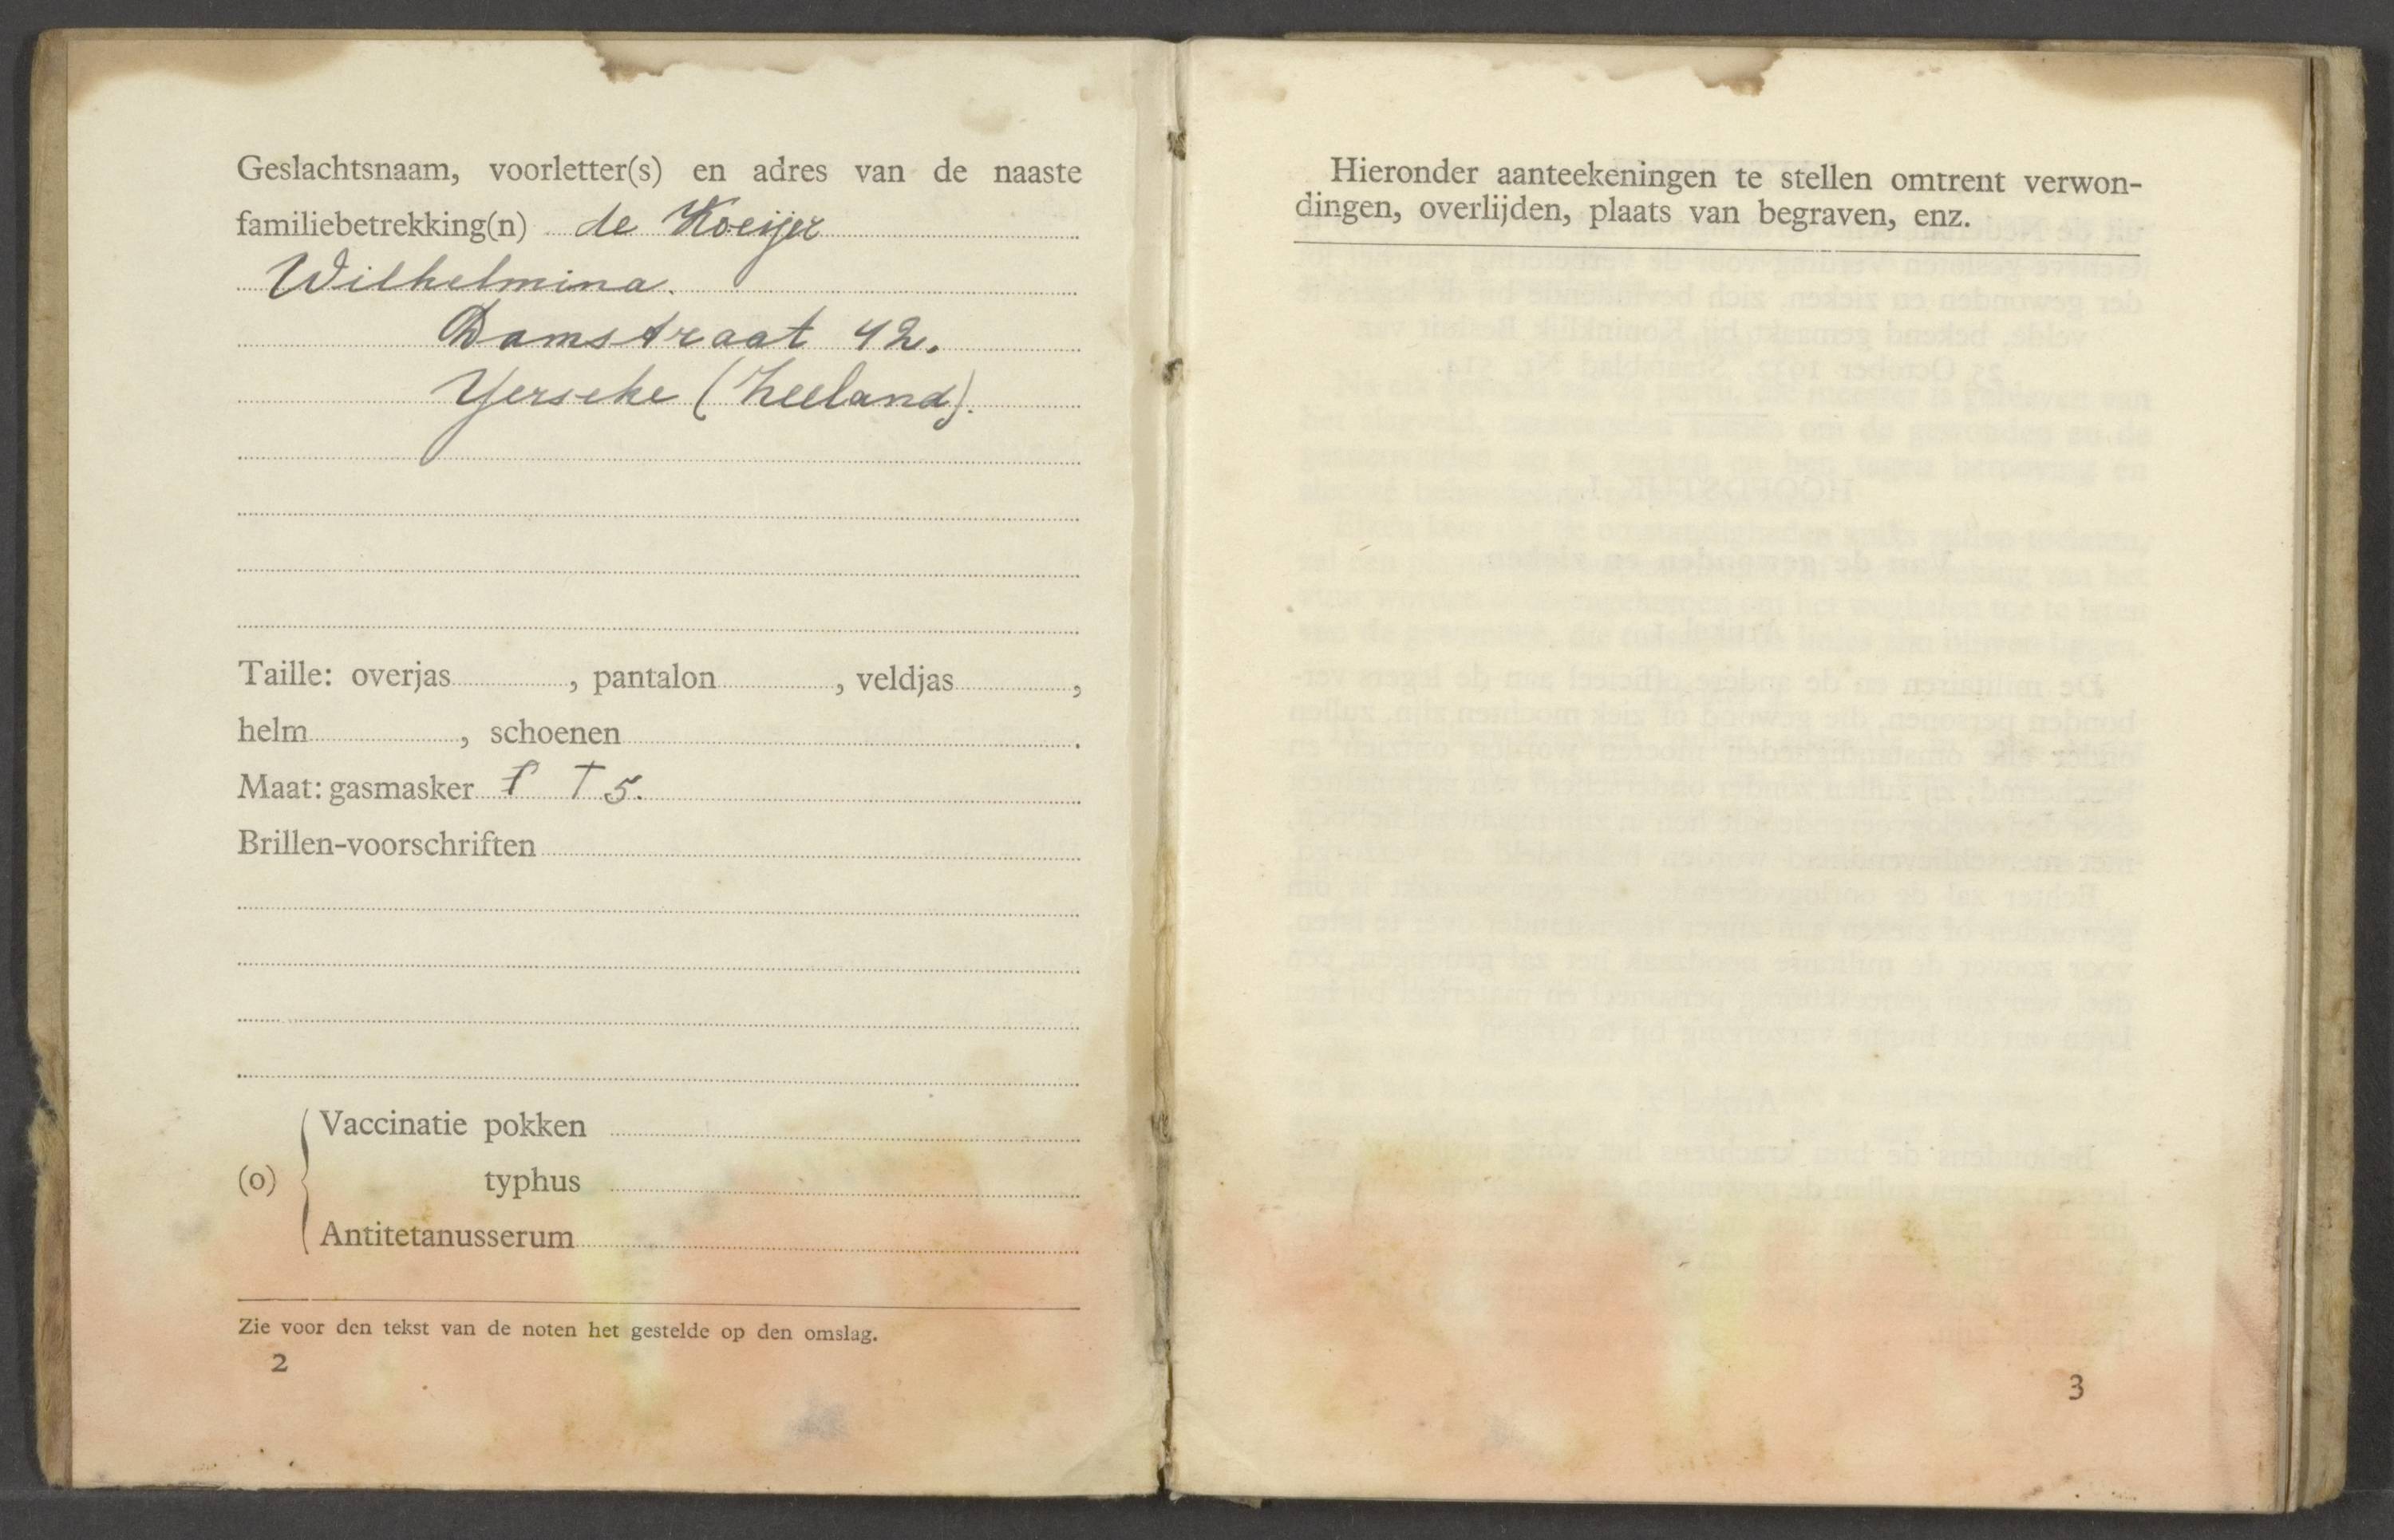 Geslachtsnaam, voorletter(s) en adres van de naaste
familiebetrekking(n) de Koeijer
Wilhelmina.
Damstraat 42.
Yerseke (Zeeland).
Taille: overjas , pantalon , veldjas ,
helm , schoenen .
Maat: gasmasker T 5.
Brillen-voorschriften
Vaccinatie pokken
(o) typhus
Antitetanusserum
Zie voor den tekst van de noten het gestelde op den omslag.
2
Hieronder aanteekeningen te stellen omtrent verwon-
dingen, overlijden, plaats van begraven, enz.
3